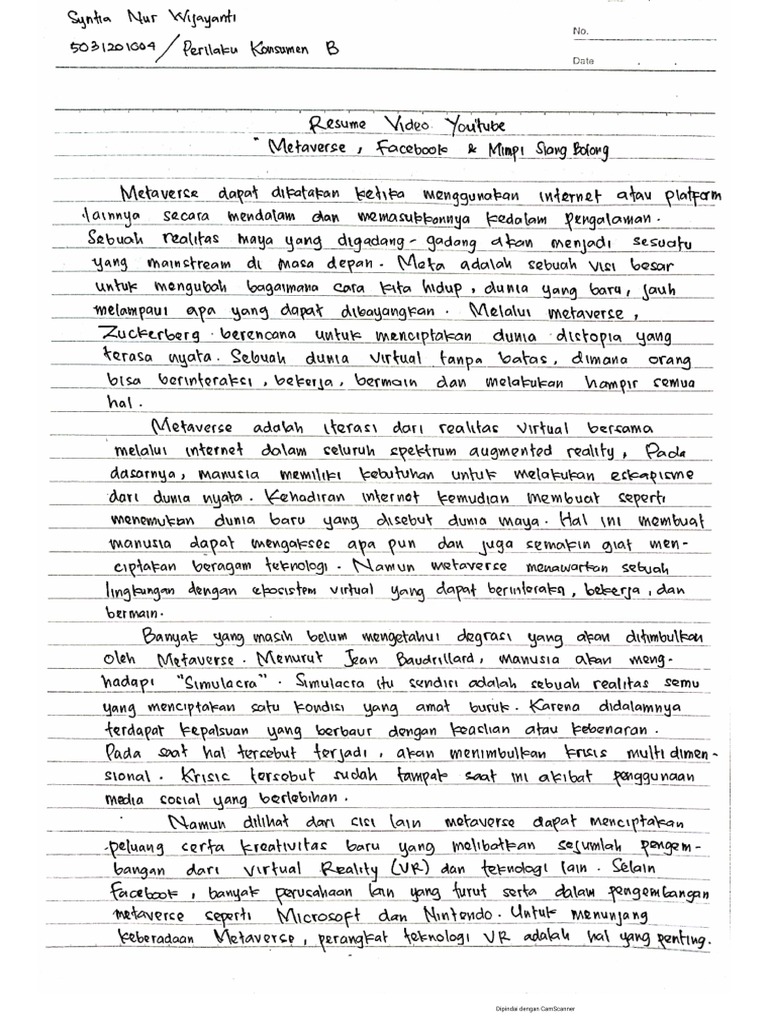 Syntia Nur Wijayanti
5031201004 / Perilaku Konsumen B
No.
Date . .
Resume Video Youtube
"Metaverse, Facebook & Mimpi Siang Bolong
Metaverse dapat dikatakan ketika menggunakan internet atau platform
lainnya secara mendalam dan memasukkannya kedalam pengalaman.
Sebuah realitas maya yang digadang-gadang akan menjadi sesuatu
yang mainstream di masa depan. Meta adalah sebuah visi besar
untuk mengubah bagaimana cara kita hidup, dunia yang baru, jauh
melampaui apa yang dapat dibayangkan. Melalui metaverse,
Zuckerberg berencana untuk menciptakan dunia distopia yang
terasa nyata. Sebuah dunia virtual tanpa batas, dimana orang
bisa berinteraksi, bekerja, bermain dan melakukan hampir semua
hal.
Metaverse adalah iterasi dari realitas virtual bersama
melalui internet dalam seluruh spektrum augmented reality, Pada
dasarnya, manusia memiliki kebutuhan untuk melakukan eskapisme
dari dunia nyata. Kehadiran internet kemudian membuat seperti
menemukan dunia baru yang disebut dunia maya. Hal ini membuat
manusia dapat mengakses apa pun dan juga semakin giat men-
ciptakan beragam teknologi. Namun metaverse menawarkan sebuah
lingkungan dengan ekosistem virtual yang dapat berinteraksi, bekerja, dan
bermain.
Banyak yang masih belum mengetahui degrasi yang akan ditimbulkan
oleh Metaverse. Menurut Jean Baudrillard, manusia akan meng-
hadapi "Simulacra". Simulacra itu sendiri adalah sebuah realitas semu
yang menciptakan satu kondisi yang amat buruk. Karena didalamnya
terdapat kepalsuan yang berbaur dengan keaslian atau kebenaran.
Pada saat hal tersebut terjadi, akan menimbulkan krisis multi dimen-
sional. Krisis tersebut sudah tampak saat ini akibat penggunaan
media social yang berlebihan.
Namun dilihat dari sisi lain metaverse dapat menciptakan
peluang serta kreativitas baru yang melibatkan sejumlah pengem-
bangan dari Virtual Reality (VR) dan teknologi lain. Selain
Facebook, banyak perusahaan lain yang turut serta dalam pengembangan
metaverse seperti Microsoft dan Nintendo. Untuk menunjang
keberadaan Metaverse, perangkat teknologi VR adalah hal yang penting.
Dipindai dengan CamScanner